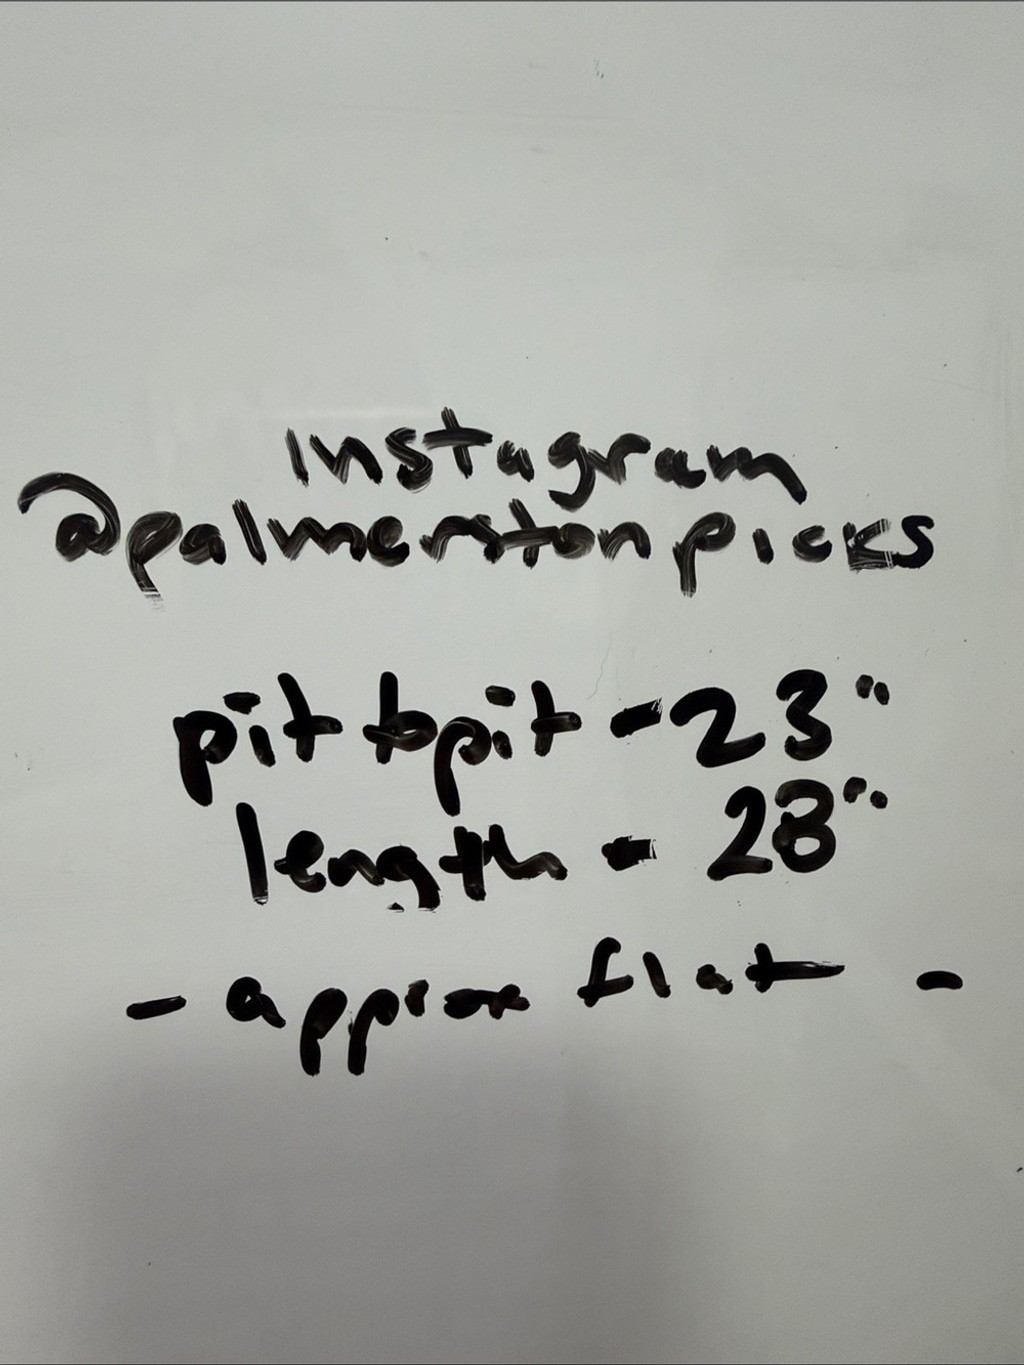 Instagram
@palmerstonpicks
pit to pit - 23"
length - 28"
- approx flat -